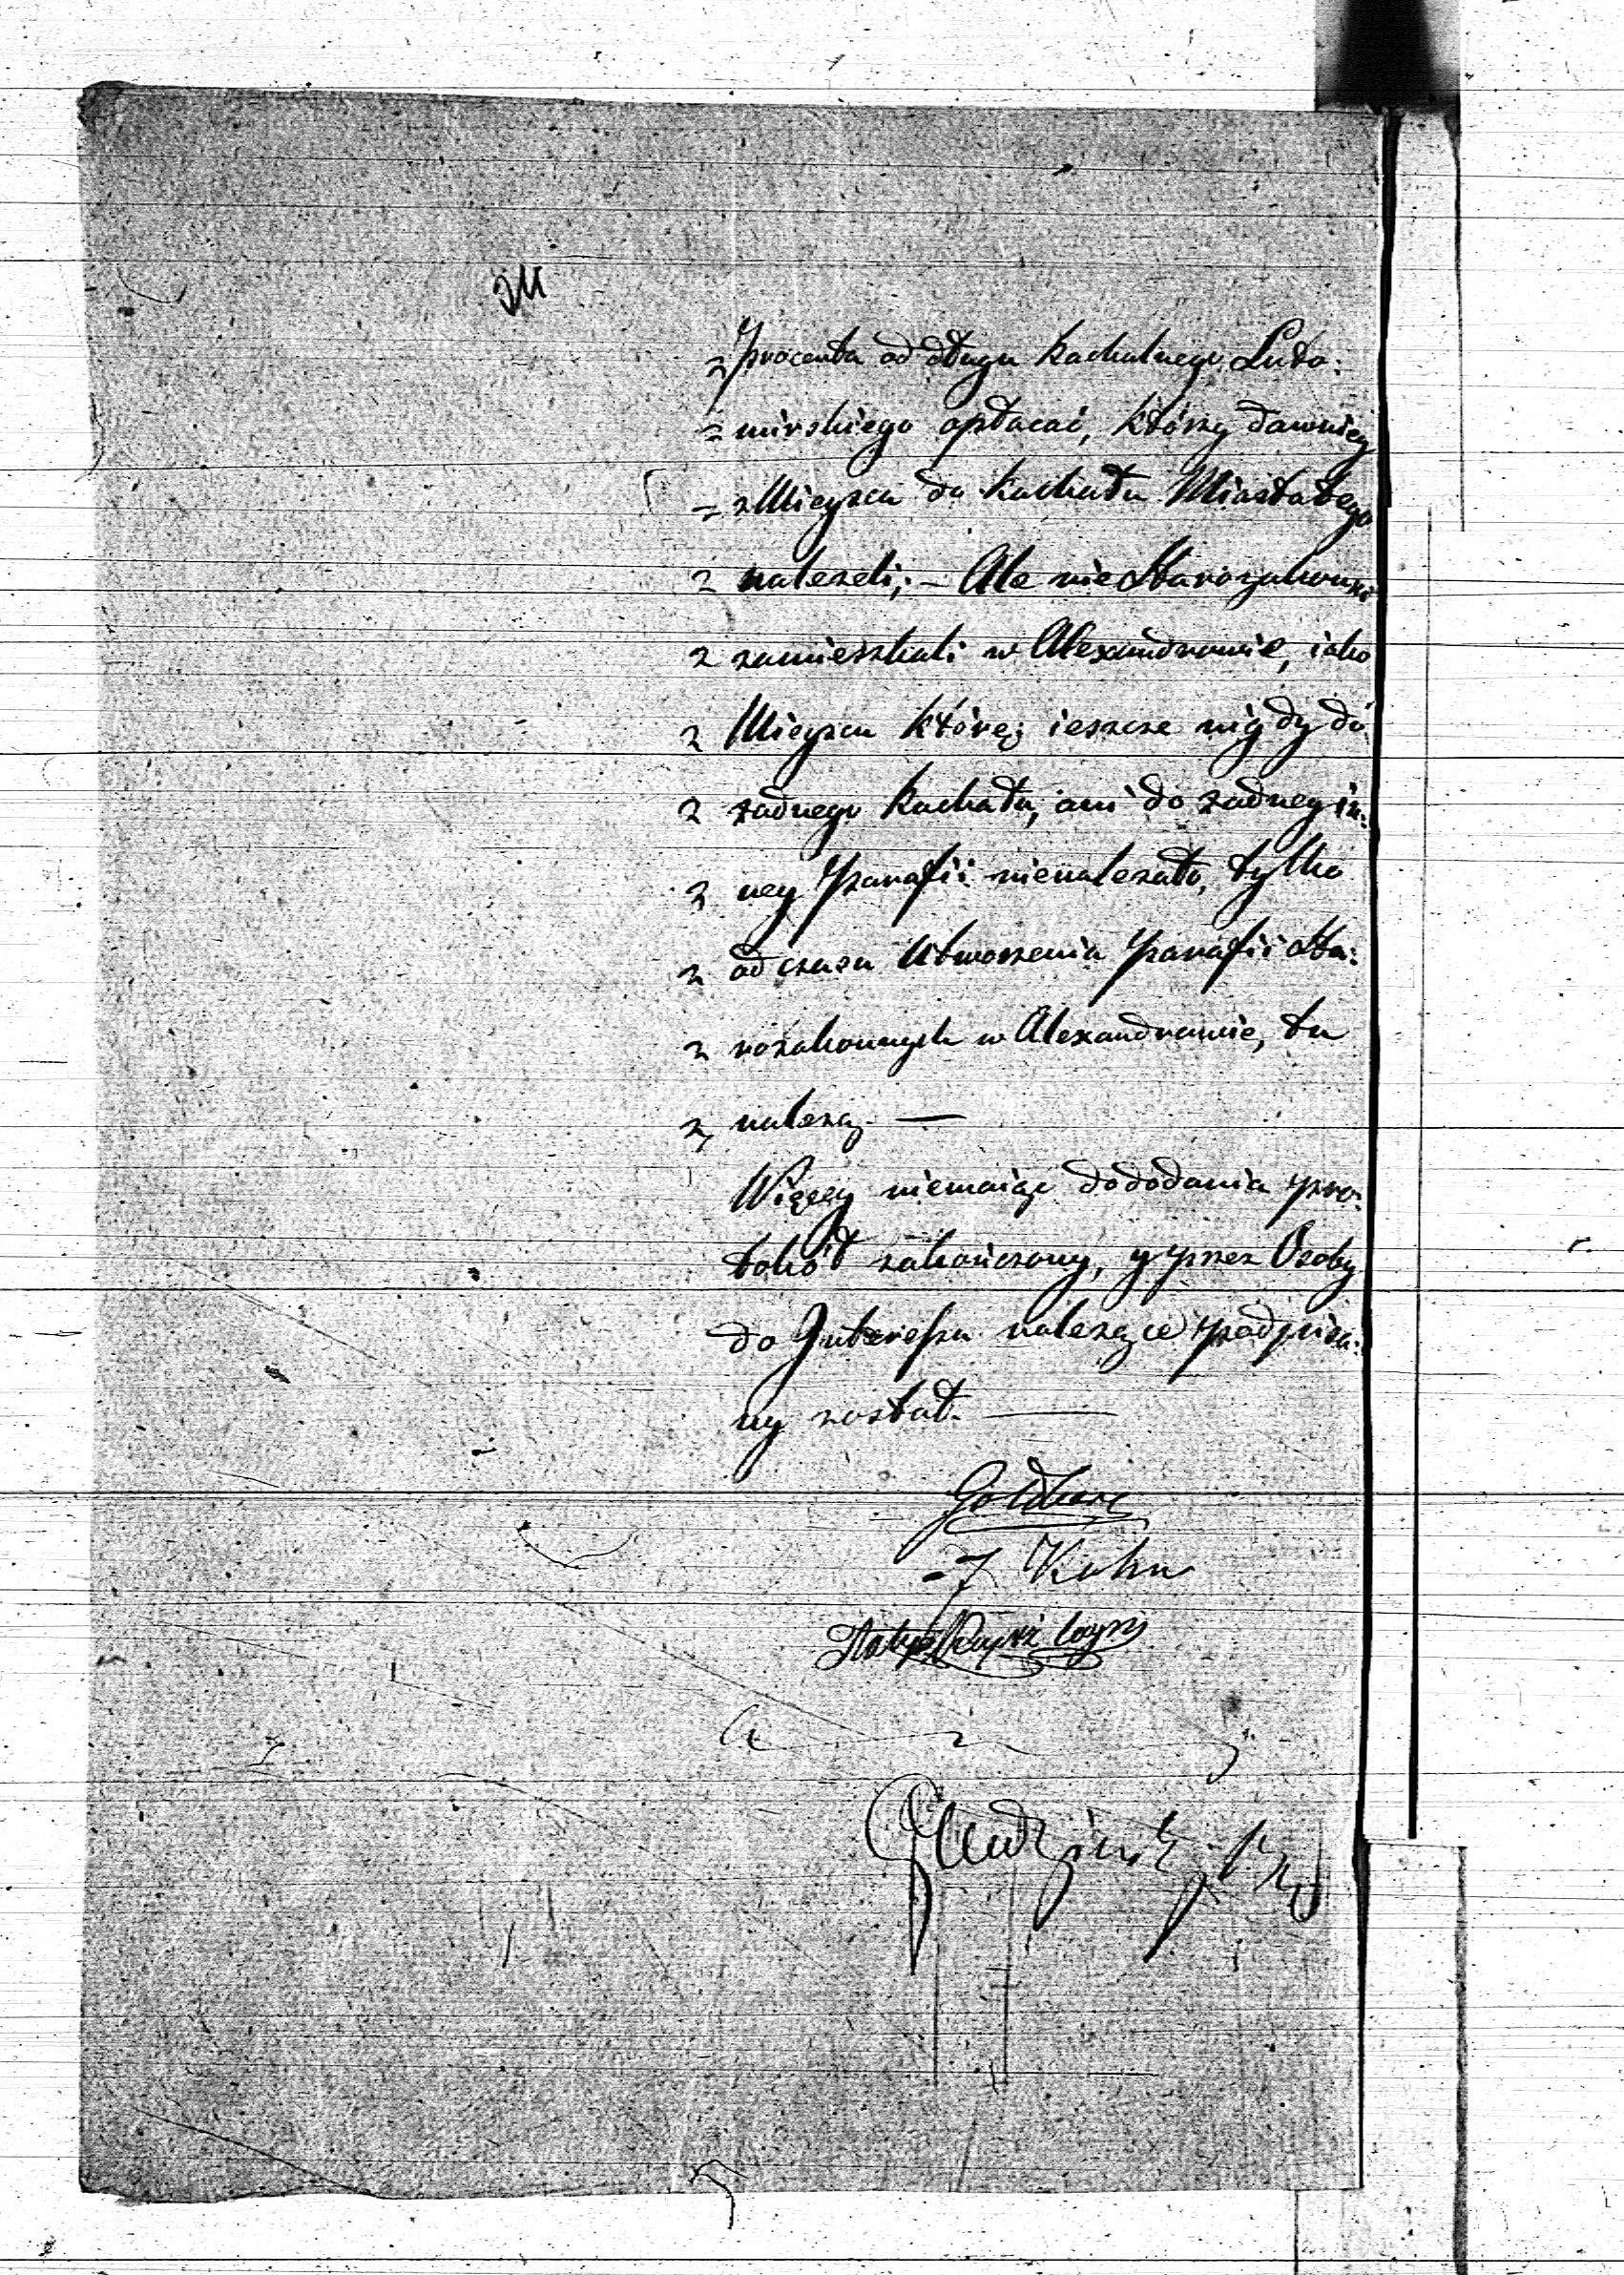 procenta od długu kachalnego Luto:
= mirskiego opłacać, którzy dawniey
= z Mieysca do kachału Miasta tego
nalezeli; – Ale nie Starozakonni
zamieszkali w Alexandrowie, iako
Mieysca które; ieszcze nigdy do
zadnego kachału, ani do zadney in:
ney Parafii nienalezało, tylko
od czasu Utworzenia Parafii Sta:
rozakonnych w Alexandrowie, tu
nalezą. —
Więcey niemaiąc dododania pro:
tokół zakończony, y przez Osoby
do Interessu nalezące podpisa:
ny został. —
Goldberg
J Kohn